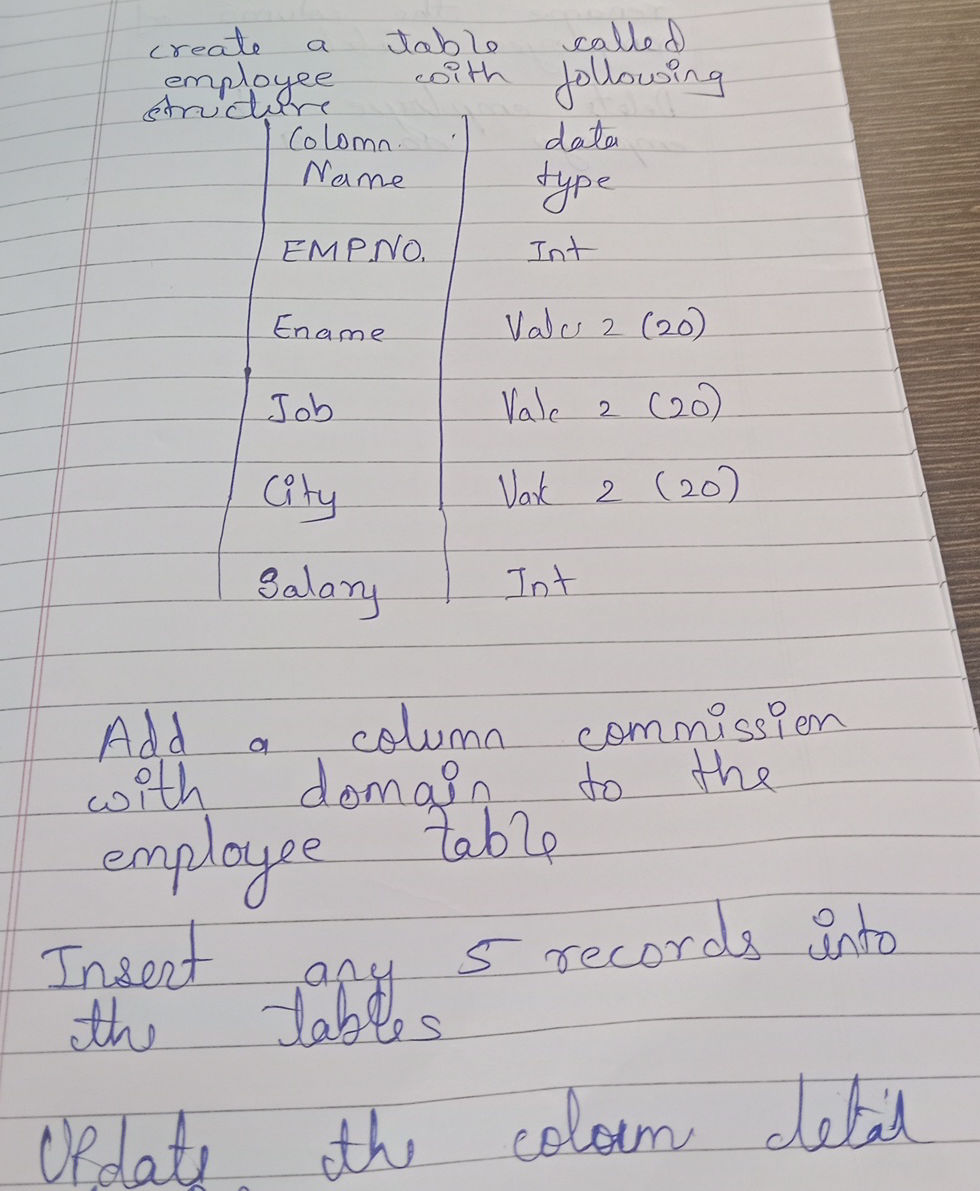 create a table called
employee with following
structure
Colomn. data
Name type
EMP.NO. Int
Ename Valc 2 (20)
Job Valc 2 (20)
City Vark 2 (20)
Salary Int
Add a column commission
with domain to the
employee table
Insert any 5 records into
the tables
Update the coloum detail